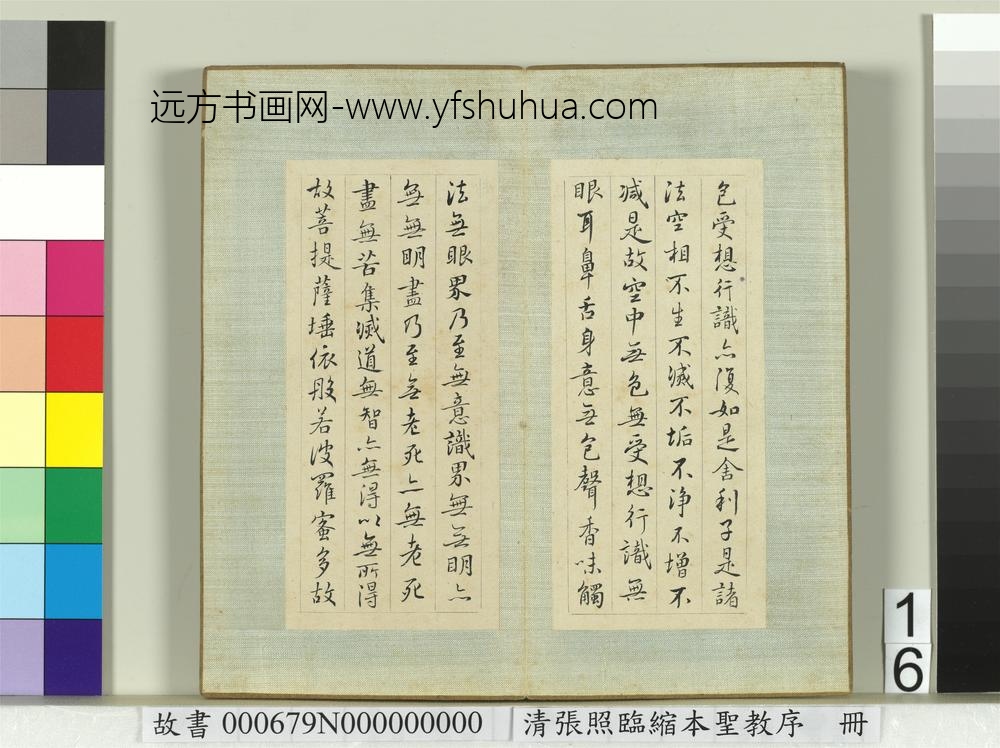 远方书画网-www.yfshuhua.com
色受想行識亦復如是舍利子是諸
法空相不生不滅不垢不淨不增不
減是故空中無色無受想行識無
眼耳鼻舌身意無色聲香味觸
法無眼界乃至無意識界無無明亦
無無明盡乃至無老死亦無老死
盡無苦集滅道無智亦無得以無所得
故菩提薩埵依般若波羅蜜多故
16
故書 000679N000000000 清張照臨縮本聖教序 冊